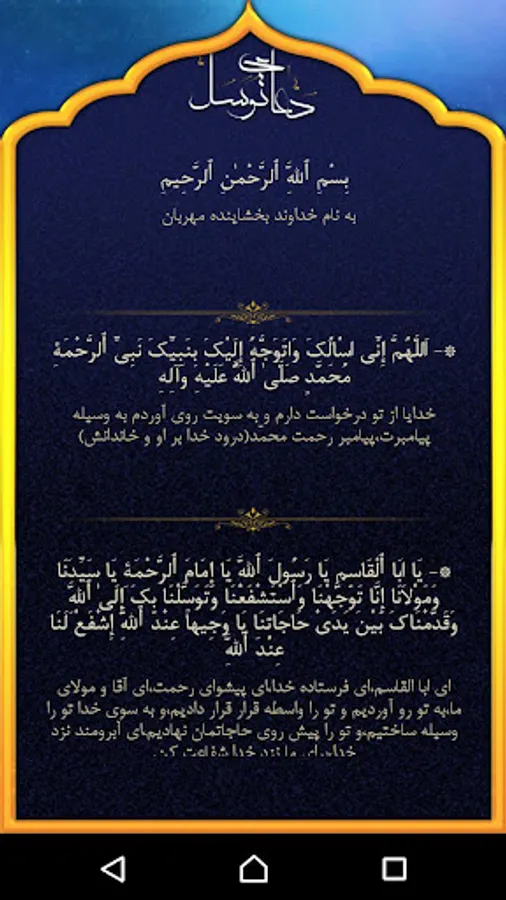 دعای توسل
بِسْمِ ٱللهَِّ ٱلرَّحْمٰنِ ٱلرَّحِيمِ
به نام خداوند بخشاینده مهربان
*- اَللّٰهُمَّ إِنِّی اسْالُکَ وَاتَوَجَّهُ إِلَیْکَ بِنَبِیِّکَ نَبِیِّ ٱلرَّحْمَةِ
مُحَمَّدٍ صَلَّیٰ ٱللهُ عَلَیْهِ وَآلِهِ
خدایا از تو درخواست دارم و به سویت روی آوردم به وسیله
پیامبرت،پیامبر رحمت محمد(درود خدا بر او و خاندانش)
*- یَا ابَا ٱلْقَاسِمِ یَا رَسُولَ ٱللهَِّ یَا إِمَامَ ٱلرَّحْمَةِ یَا سَیِّدَنَا
وَمَوْلَانَا إِنَّا تَوَجَّهْنَا وَاسْتَشْفَعْنَا وَتَوَسَّلْنَا بِکَ إِلَی ٱللهَِّ
وَقَدَّمْنَاکَ بَیْنَ یَدَیْ حَاجَاتِنَا یَا وَجِیهاً عِنْدَ ٱللهِ إِشْفَعْ لَنَا
عِنْدَ ٱللهَِّ
ای ابا القاسم،ای فرستاده خدا،ای پیشوای رحمت،ای آقا و مولای
ما،به تو رو آوردیم و تو را واسطه قرار قرار دادیم،و به سوی خدا تو را
وسیله ساختیم،و تو را پیش روی حاجاتمان نهادیم،ای آبرومند نزد
خدا،برای ما نزد خدا شفاعت کن.